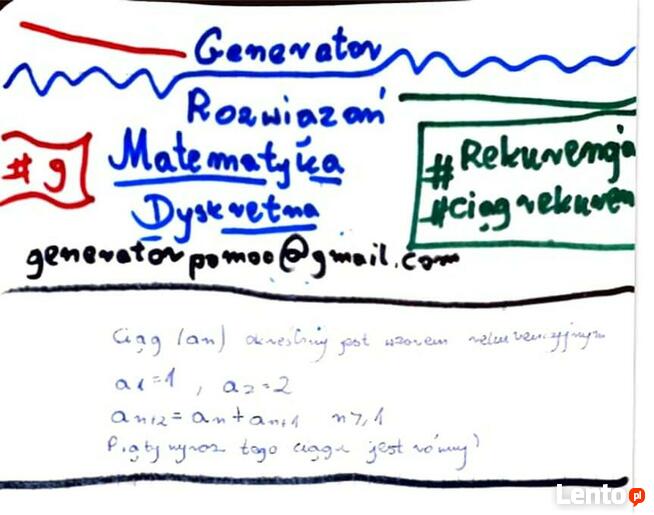 Generator
Rozwiazań
# 9
Matematyka
Dyskretna
#Rekurencja
#Ciąg rekuren
generatorpomoo@gmail.com
Ciąg (an) określony jest wzorem rekurencyjnym
a1=1 , a2=2
an+2=an+an+1 n≥1
Piąty wyraz tego ciągu jest równy?
Lento.pl